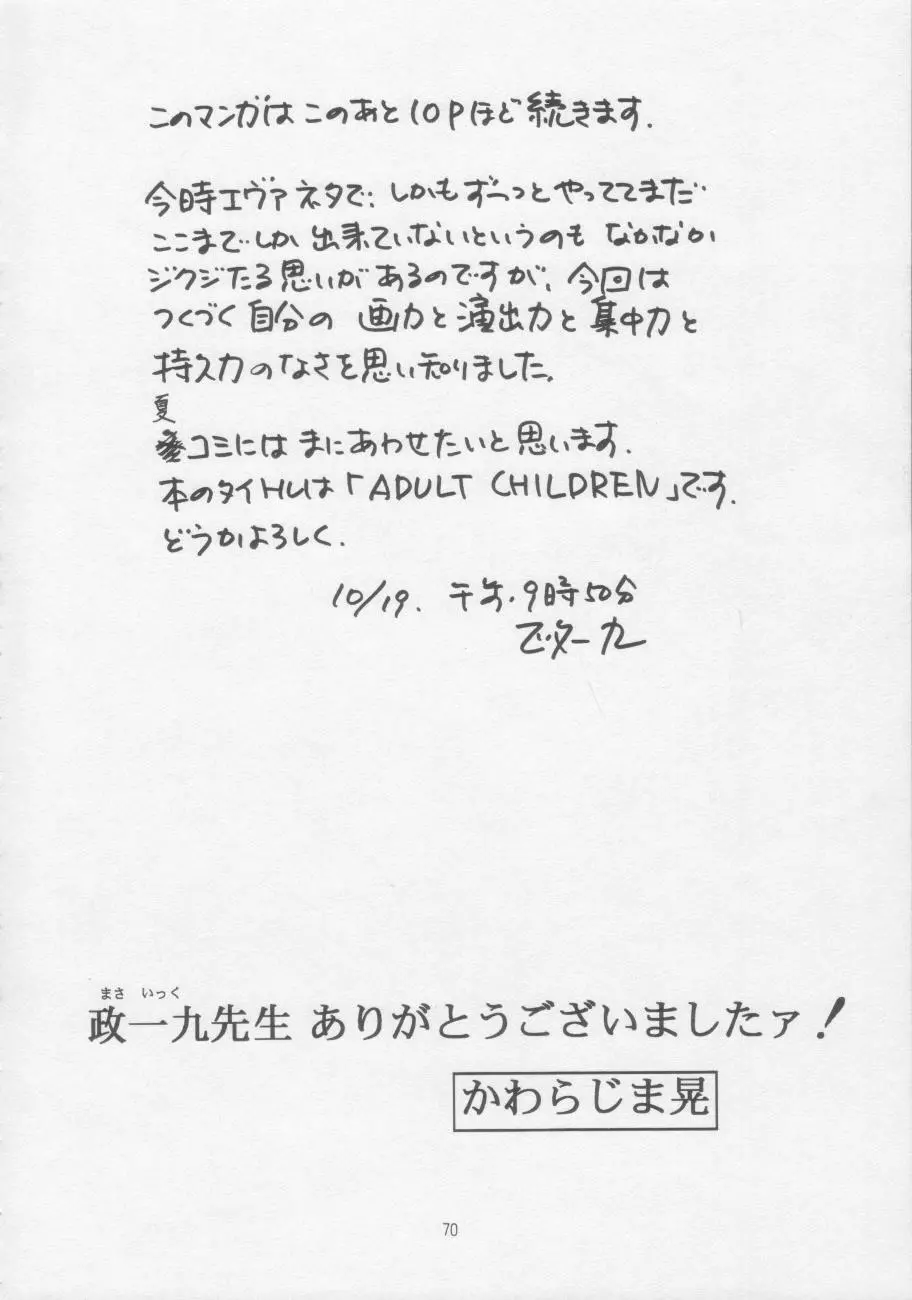 このマンガはこのあと10Pほど続きます.
今時エヴァネタで、しかもずーっとやっててまだ
ここまでしか出来ていないというのもなかなか
ジクジたる思いがあるのですが、今回は
つくづく自分の画力と演出力と集中力と
持久力のなさを思い知りました。
夏
コミにはまにあわせたいと思います.
本のタイトルは「ADULT CHILDREN」です.
どうかよろしく.
10/19. 午. 9時50分
政一九
まさ いっく
政一九先生 ありがとうございましたァ!
かわらじま晃
70